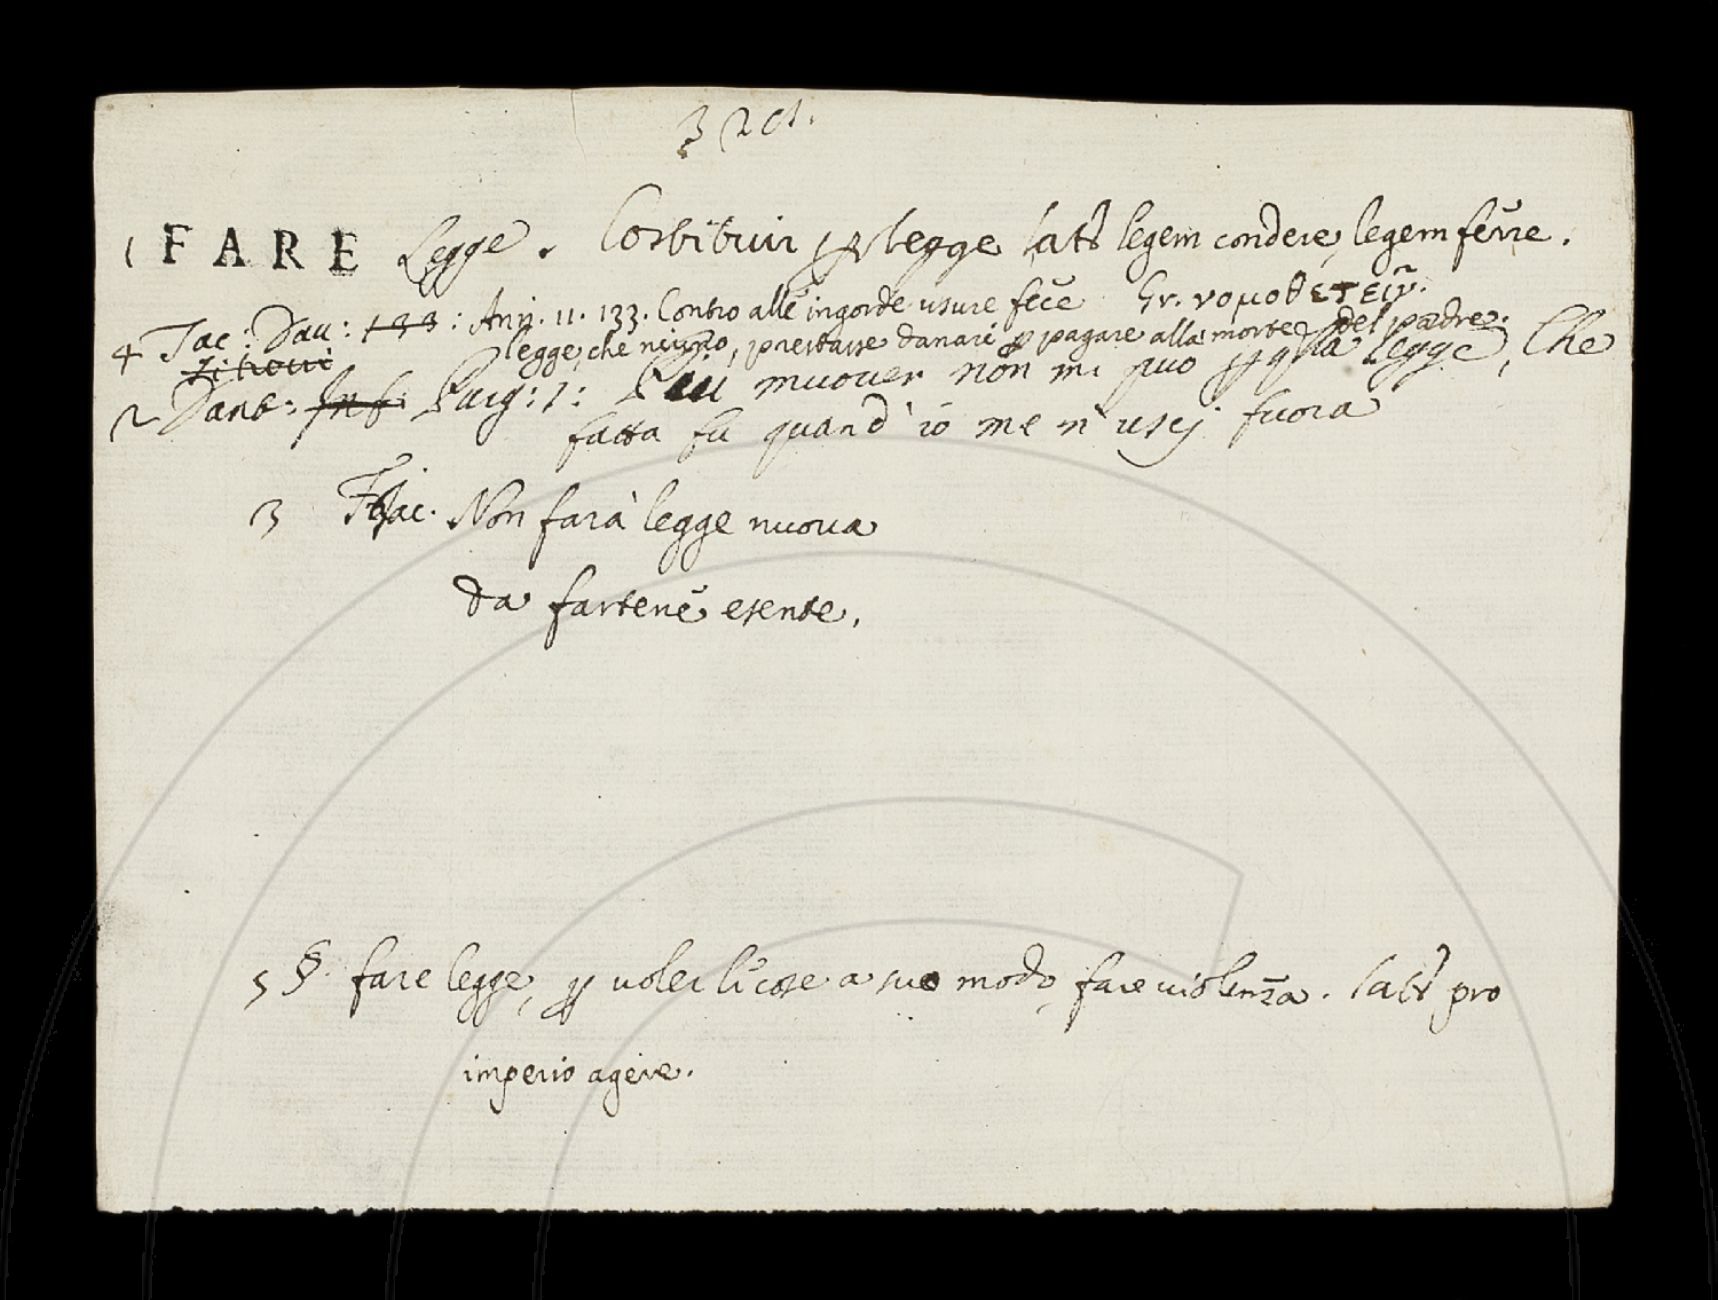 3201.
1 FARE Legge. Costituir ꝑ legge Lat. legem condere, legem ferre.
Gr. νομοθετεῖν.
4 Tac: Dav: 133: Ann. 11. 133. Contro alle ingorde usure fece
legge, che niuno, prestasse danari ꝑ pagare alla morte del padre.
Si trovi
2 Dant: Inf: Purg: 1: Più muover non mi può ꝑ q.lla Legge, Che
fatta fu quand'io me n'uscj fuora
3 Non farà legge nuova
da fartene esente.
5 §. fare legge, ꝑ voler le cose a suo modo, fare violenza. Lat. pro
imperio agere.